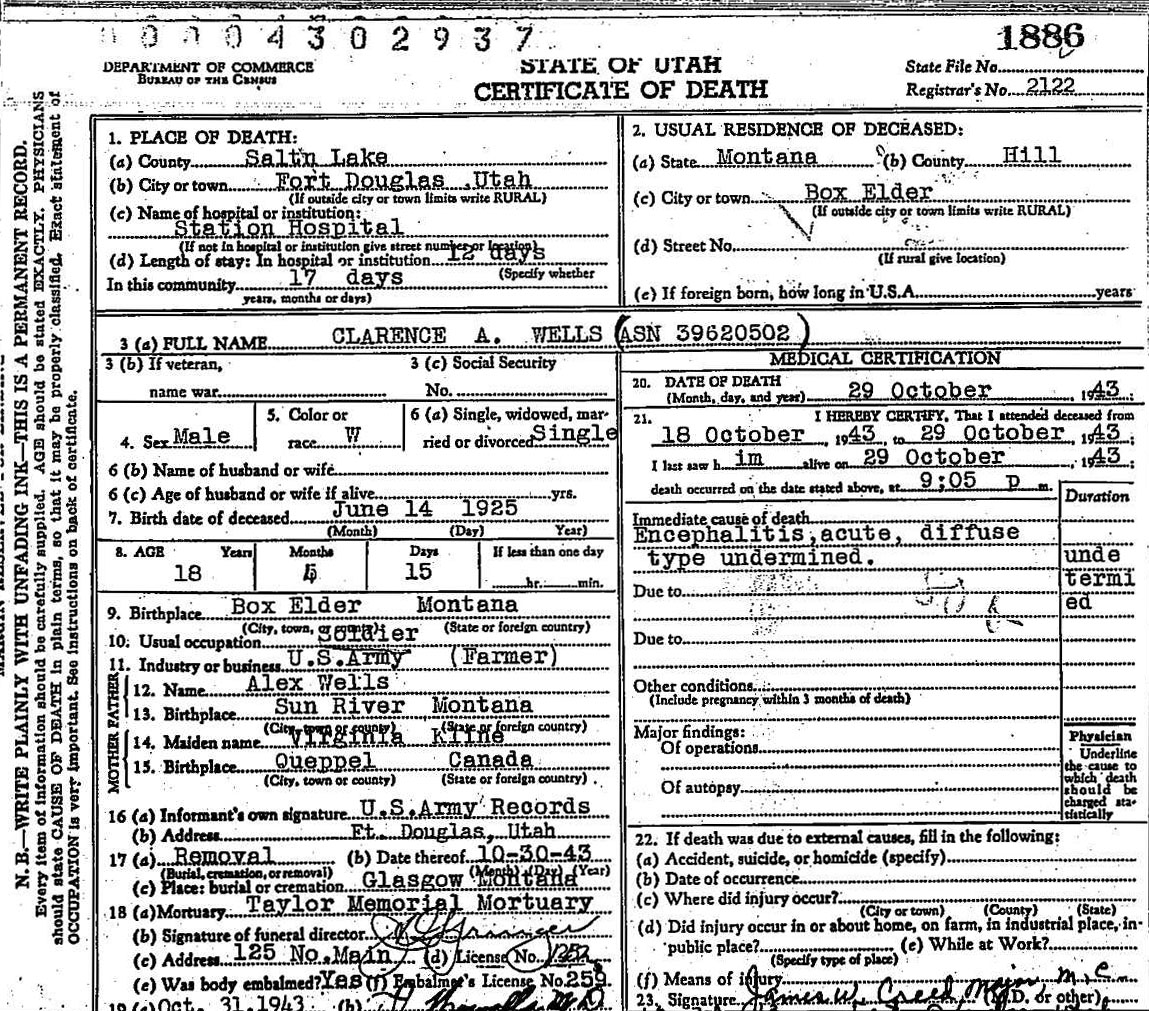 00004302937
1886
DEPARTMENT OF COMMERCE
BUREAU OF THE CENSUS
STATE OF UTAH
CERTIFICATE OF DEATH
State File No.
Registrar's No. 2122
N. B.—WRITE PLAINLY WITH UNFADING INK—THIS IS A PERMANENT RECORD.
Every item of information should be carefully supplied. AGE should be stated EXACTLY. PHYSICIANS
should state CAUSE OF DEATH in plain terms, so that it may be properly classified. Exact statement of
OCCUPATION is very important. See instructions on back of certificate.
1. PLACE OF DEATH:
(a) County Saltn Lake
(b) City or town Fort Douglas ,Utah
(If outside city or town limits write RURAL)
(c) Name of hospital or institution:
Station Hospital
(If not in hospital or institution give street number or location)
(d) Length of stay: In hospital or institution 12 days
(Specify whether
In this community 17 days
years, months or days)
2. USUAL RESIDENCE OF DECEASED:
(a) State Montana (b) County Hill
(c) City or town Box Elder
(If outside city or town limits write RURAL)
(d) Street No.
(If rural give location)
(e) If foreign born, how long in U.S.A. years
3 (a) FULL NAME CLARENCE A. WELLS (ASN 39620502)
3 (b) If veteran,
name war
3 (c) Social Security
No.
4. Sex Male
5. Color or
race W
6 (a) Single, widowed, mar-
ried or divorced Single
6 (b) Name of husband or wife
6 (c) Age of husband or wife if alive yrs.
7. Birth date of deceased June 14 1925
(Month) (Day) Year)
8. AGE Years Months Days If less than one day
18 15 hr. min.
9. Birthplace Box Elder Montana
(City, town, or county) (State or foreign country)
10. Usual occupation Soldier
11. Industry or business U.S.Army (Farmer)
FATHER
12. Name Alex Wells
13. Birthplace Sun River Montana
(City, town or county) (State or foreign country)
MOTHER
14. Maiden name Virginia Kline
15. Birthplace Queppel Canada
(City, town or county) (State or foreign country)
16 (a) Informant's own signature U.S.Army Records
(b) Address Ft. Douglas, Utah
17 (a) Removal (b) Date thereof 10-30-43
(Burial, cremation, or removal) (Month) (Day) (Year)
(c) Place: burial or cremation Glasgow Montana
18 (a) Mortuary Taylor Memorial Mortuary
(b) Signature of funeral director
(c) Address 125 No.Main (d) License No. 1252
(e) Was body embalmed? Yes (f) Embalmer's License No. 259
19 (a) Oct. 31.1943 (b)
MEDICAL CERTIFICATION
20. DATE OF DEATH
(Month, day, and year) 29 October , 1943
21. I HEREBY CERTIFY, That I attended deceased from
18 October , 1943, to 29 October , 1943;
I last saw h im alive on 29 October , 1943;
death occurred on the date stated above, at 9;05 p m.
Duration
Immediate cause of death
Encephalitis,acute, diffuse
type undermined.
unde
termi
ed
Due to
Due to
Other conditions
(Include pregnancy within 3 months of death)
Major findings:
Of operations
Of autopsy
Physician
Underline
the cause to
which death
should be
charged sta-
tistically
22. If death was due to external causes, fill in the following:
(a) Accident, suicide, or homicide (specify)
(b) Date of occurrence
(c) Where did injury occur?
(City or town) (County) (State)
(d) Did injury occur in or about home, on farm, in industrial place, in-
public place? (e) While at Work?
(Specify type of place)
(f) Means of injury
23. Signature James W. Creed Major M.C. (M.D. or other)